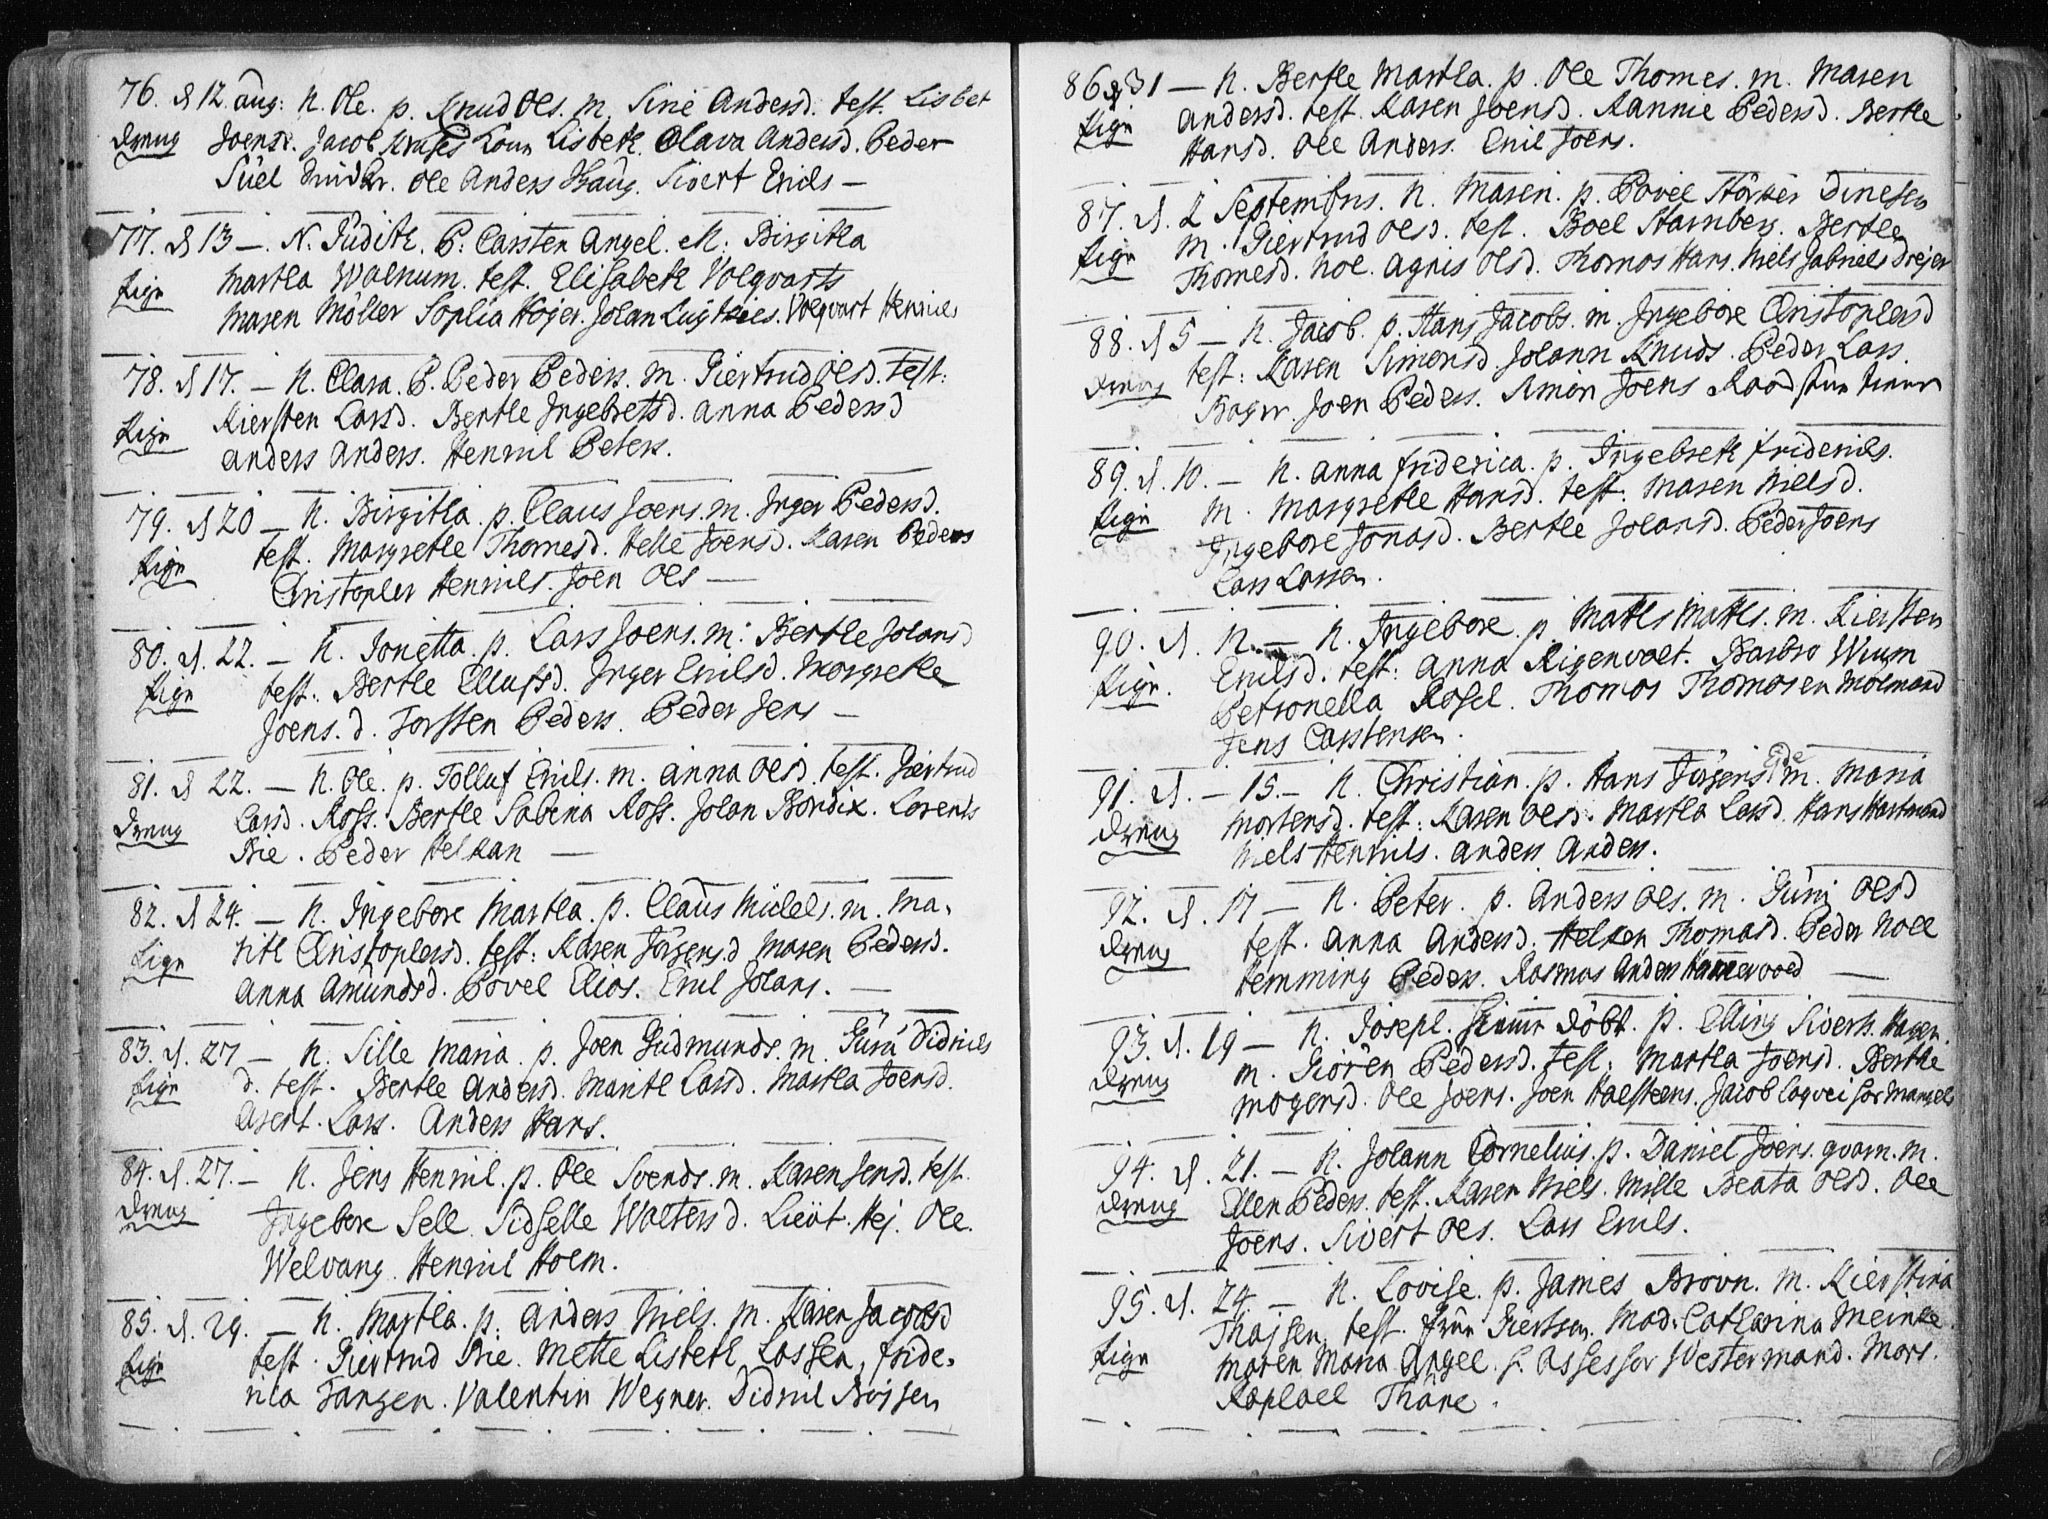 76. d 12. aug: N. Ole. p. Knud Ols. m. Sirie Andersd. test. Lisbet
dreng Joensd. Jacob Kruses Kone Lisbeth. Olava Andersd. Peder
Ole Anders Haug. Sivert Erichs —
77. d 13 —. N. Judith. P: Carsten Angel. M: Birgitha
Pige Martha Walnum. test. Elisabeth Volqvarts
Maren Möller Sophia Hojer. Johan Lugthies. Volqvart Henrichs
78. d 17. — N. Clara. P. Peder Peders. m. Giertrud Olsd. test:
Pige Kiersten Larsd. Berthe Ingebretsd. Anna Pedersd
Anders Anders. Henrich Peters.
79. d 20 — N. Birgitha. p. Claus Joens. m. Inger Pedersd.
Pige test. Margrethe Thomesd. Helle Joensd. Karen Peders
Christopher Henrichs. Joen Ols —
80. d. 22. — N. Jonetta. p. Lars Joens. m: Berthe Johansd
Pige test. Berthe Ellufsd. Inger Erichsd. Margrethe
Joens.d. Torsten Peders. Peder Jens —
81. d 22. — N. Ole. p. Tolluf Erichs. m. Anna Olsd. test. Giertrud
dreng Larsd. Ross. Berthe Sabena Ross. Johan Bendix. Lorents
Bie. Peder Helkan —
82. d 24. — N. Ingebore Martha. p. Claus Michels. m. Ma-
Pige rith Christophersd. test: Karen Jörgensd Maren Pedersd.
Anna Amundsd. Povel Elias. Erich Johans. —
83. d. 27 — N. Sille Maria. p. Joen Gudmunds. m. Guru Didrichs
Pige d. test. Berthe Andersd. Marith Larsd. Martha Joensd.
Arent Lars. Anders Hans.
84. d. 27. — N. Jens Henrich. p. Ole Svends. m. Karen Jensd. test.
dreng Ingebore Sell. Sidselle Woltersd. Lieut. Hej. Ole.
Welvang. Henrich Holm.
85. d. 29. — N. Martha. p. Anders Niels. m. Karen Jacobsd
Pige test. Giertrud Bie. Mette Lisbeth Lossen, fride-
rica Tangen. Valentin Wegner. Didrich Boysen
86. d 31 — N. Berthe Martha. p. Ole Thomes. m. Maren
Pige Andersd. test. Karen Joensd. Rannie Pedersd. Berthe
Hansd. Ole Anders. Erich Joens.
87. d. 2 Septembris. N. Maren. p. Povel Störker Dinesen
Pige m. Giertrud Olsd. test. Boel Starnberg. Berthe
Thomesd. Noe. Agnis Olsd. Thomas Hans. Niels Gabriels Drejer
88. d 5 — N. Jacob. p. Hans Jacobs. m. Ingebore Christophersd
dreng test: Karen Simonsd. Johann Knuds. Peder Lars.
Bager. Joen Peders. Simon Joens
89. d. 10. — N. Anna friderica. p. Ingebreth friderichs.
Pige m. Margrethe Hansd. test: Maren Nielsd.
Ingebore Jonasd. Berthe Johansd. Peder Joens
Lars Larsen.
90. d. 12 — N. Ingebore. p. Maths Maths. m. Kiersten
Pige. Erichsd. test: Anna Rigenvolt. Barbro Wium
Petronella Rosel. Thomas Thomasen Molmand
Jens Carstensen.
91. d. — 15 — N. Christian. p. Hans Jörgens m. Maria
dreng Mortensd. test: Karen Olsd. Martha Larsd. Hans Hartmand
Niels Henrichs. Anders Anders.
92. d. 17 — N. Peter. p. Anders Ols. m. Guru Olsd
dreng test. Anna Andersd. Helken Thomasd. Peder Noll
Hemming Peders. Rasmus Anders Hammervold —
93. d. 19 — N. Joseph. döbt. p. Elling Siverts. Hagen.
dreng m. Giören Pedersd. test: Martha Joensd. Berthe
Mogensd. Ole Joens. Joen Halsteens. Jacob
94. d. 21. — N. Johann Cornelius. p. Daniel Joens. qvarn. m.
dreng Ellen Peders. test. Karen Niels. Mille Beata Olsd. Ole
Joens. Sivert Ols. Lars Erichs.
95. d. 24. — N. Lovise. p. James Brovn. m. Kierstina
Pige Thajsen. test. frue Giertsen. Mad: Catharina Meinke.
Maren Maria Angel. h. Assessor Westermand. Mons.
Raphael Thäne.